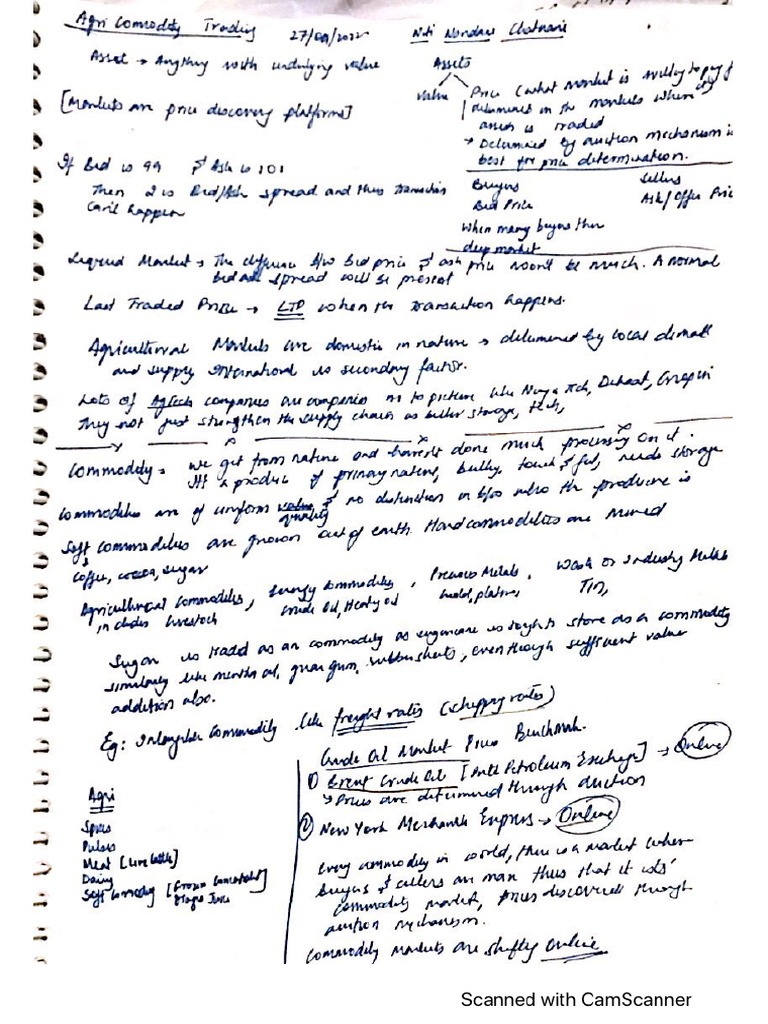 Agri Commodity Trading 27/09/2022 Niti Nandini Chatnani
Asset → Anything with underlying value
[Markets are price discovery platforms]
Assets
Value
Price (what market is willing to pay
determined in the markets where
asset is traded
→ Determined by auction mechanism is
best for price determination.
If Bid is 99 & Ask is 101
Then 2 is Bid/Ask spread and thus transaction
can't happen
Buyers Sellers
Bid Price Ask/Offer Price
When many buyers then
deep market
Market → The difference b/w bid price & ask price won't be much. A normal
bid ask spread will be present
Last Traded Price → LTP when the transaction happens.
Agricultural Markets are domestic in nature → determined by local demand
and supply International is secondary factor.
Lots of AgTech companies are companies in to picture like Ninja, Dehaat,
They not just strengthen the supply chain as better storage, tech,
Commodity → we get from nature and haven't done much processing on it.
It's a produce of primary nature, bulky, touch & feel, needs storage
Commodities are of uniform value & no distinction in b/w who the producer is
quality
Soft commodities are grown out of earth Hard commodities are mined
Coffee, cocoa, sugar
Agricultural Commodities, Energy Commodities, Precious Metals, Metals
includes livestock Crude Oil, Gold, platinum, Tin,
Sugar is traded as an commodity as sugarcane is tough to store as a commodity
similarly like mentha oil, guar gum, rubber sheets, even though sufficient value
addition also.
Eg: Intangible Commodity like freight rates (shipping rates)
Agri
Spices
Pulses
Meat [Live Cattle]
Dairy
Soft Commodity
Crude Oil Market Price Benchmark.
① Brent Crude Oil [Petroleum Exchange] → Online
→ Prices are determined through auction
② New York Express → Online
Every commodity in world, there is a market where
buyers & sellers are thus that it is
commodity market, prices discovered through
auction mechanism.
Commodity markets are shifting online
Scanned with CamScanner